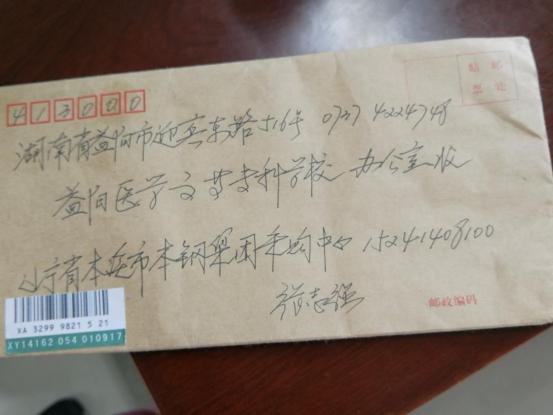 贴 邮
票 处
413000
湖南省益阳市迎宾东路516号 0737 4224748
益阳医学高等专科学校 办公室收
辽宁省本溪市本钢集团采购中心 15241408100
张志强
XA 3299 9821 5 21
XY14162 054 010917
邮政编码